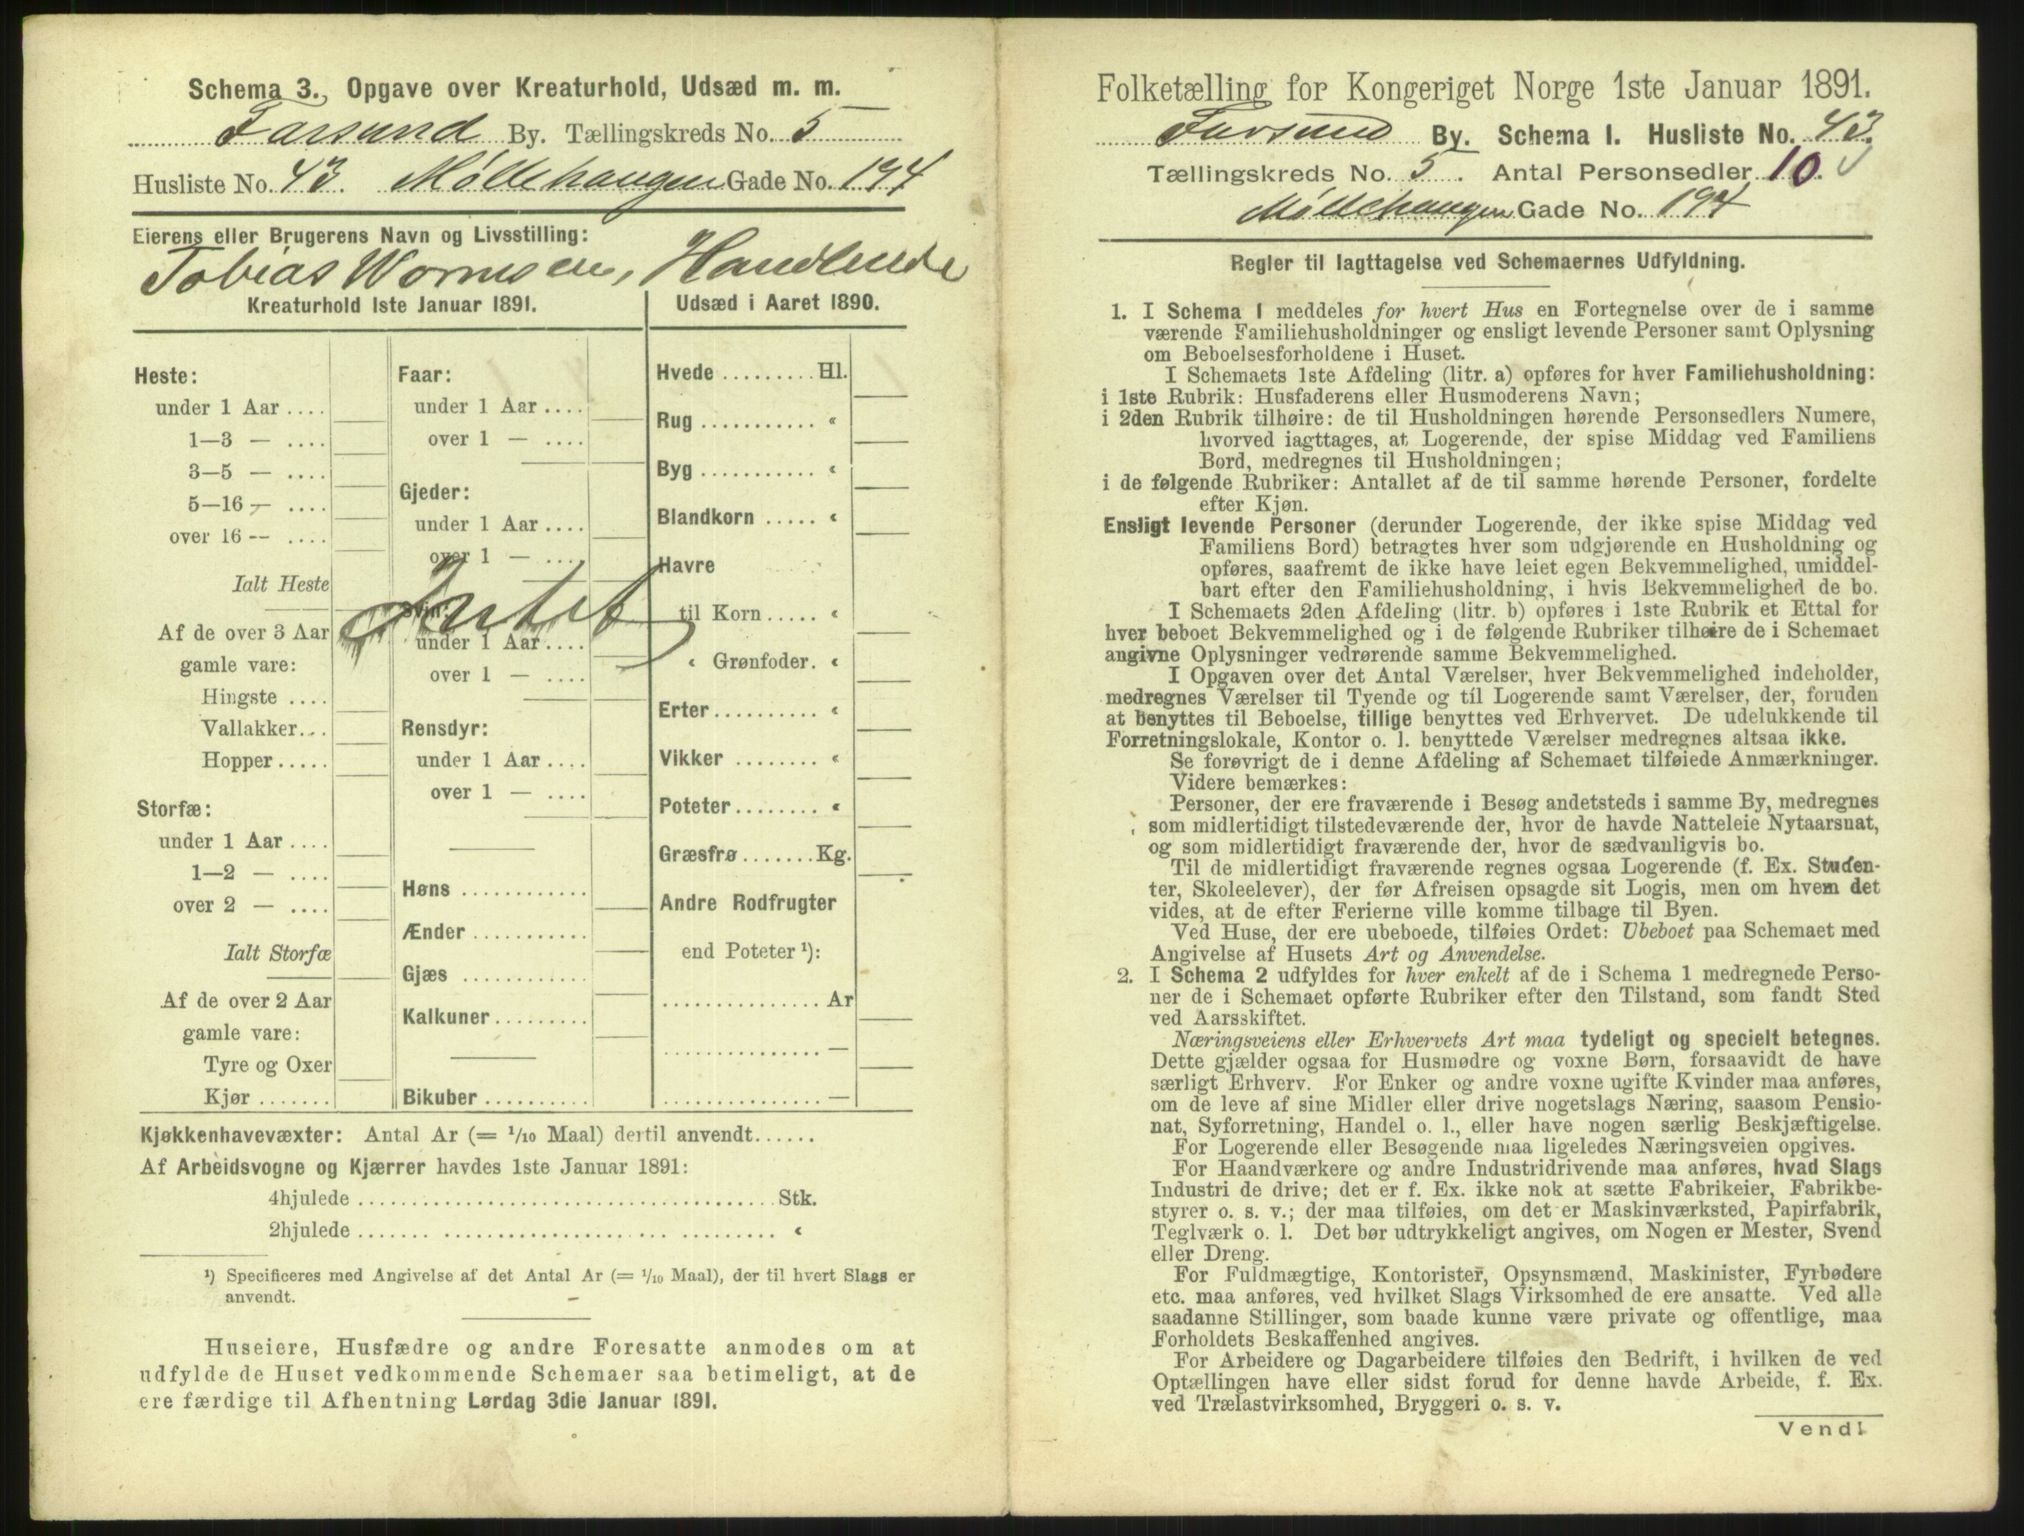 Schema 3. Opgave over Kreaturhold, Udsæd m. m.
Farsund By. Tællingskreds No. 5
Husliste No. 43. Møllehaugen Gade No. 194
Eierens eller Brugerens Navn og Livsstilling:
Tobias Wornesen, Handlende
Kreaturhold 1ste Januar 1891.
Heste:
under 1 Aar ....
1—3 — ....
3—5 — ....
5—16 — ....
over 16 — ....
Ialt Heste
Af de over 3 Aar
gamle vare:
Hingste ....
Vallakker...
Hopper.....
Storfæ:
under 1 Aar ....
1—2 — ....
over 2 — ....
Ialt Storfæ
Af de over 2 Aar
gamle vare:
Tyre og Oxer
Kjør .......
Faar:
under 1 Aar ....
over 1 — ....
Gjeder:
under 1 Aar ....
over 1 — ....
Intet
Svin:
under 1 Aar....
over 1 — ....
Rensdyr:
under 1 Aar ....
over 1 — ....
Høns ............
Ænder ...........
Gjæs ............
Kalkuner.........
Bikuber ..........
Udsæd i Aaret 1890.
Hvede .........Hl.
Rug ........... «
Byg ........... «
Blandkorn ..... «
Havre
til Korn ..... «
« Grønfoder. «
Erter.......... «
Vikker ........ «
Poteter........ «
Græsfrø .......Kg.
Andre Rodfrugter
end Poteter ¹):
............... Ar
............... —
............... —
Kjøkkenhavevæxter: Antal Ar (= 1/10 Maal) dertil anvendt......
Af Arbeidsvogne og Kjærrer havdes 1ste Januar 1891:
4hjulede ........................................ Stk.
2hjulede ........................................ «
¹) Specificeres med Angivelse af det Antal Ar (= 1/10 Maal), der til hvert Slags er
anvendt.
Huseiere, Husfædre og andre Foresatte anmodes om at
udfylde de Huset vedkommende Schemaer saa betimeligt, at de
ere færdige til Afhentning Lørdag 3die Januar 1891.
Folketælling for Kongeriget Norge 1ste Januar 1891.
Farsund By. Schema I. Husliste No. 43.
Tællingskreds No. 5. Antal Personsedler 10.
Møllehaugen Gade No. 194
Regler til Iagttagelse ved Schemaernes Udfyldning.
1. I Schema 1 meddeles for hvert Hus en Fortegnelse over de i samme
værende Familiehusholdninger og ensligt levende Personer samt Oplysning
om Beboelsesforholdene i Huset.
I Schemaets 1ste Afdeling (litr. a) opføres for hver Familiehusholdning:
i 1ste Rubrik: Husfaderens eller Husmoderens Navn;
i 2den Rubrik tilhøire: de til Husholdningen hørende Personsedlers Numere,
hvorved iagttages, at Logerende, der spise Middag ved Familiens
Bord, medregnes til Husholdningen;
i de følgende Rubriker: Antallet af de til samme hørende Personer, fordelte
efter Kjøn.
Ensligt levende Personer (derunder Logerende, der ikke spise Middag ved
Familiens Bord) betragtes hver som udgjørende en Husholdning og
opføres, saafremt de ikke have leiet egen Bekvemmelighed, umiddel-
bart efter den Familiehusholdning, i hvis Bekvemmelighed de bo.
I Schemaets 2den Afdeling (litr. b) opføres i 1ste Rubrik et Ettal for
hver beboet Bekvemmelighed og i de følgende Rubriker tilhøire de i Schemaet
angivne Oplysninger vedrørende samme Bekvemmelighed.
I Opgaven over det Antal Værelser, hver Bekvemmelighed indeholder,
medregnes Værelser til Tyende og til Logerende samt Værelser, der, foruden
at benyttes til Beboelse, tillige benyttes ved Erhvervet. De udelukkende til
Forretningslokale, Kontor o. l. benyttede Værelser medregnes altsaa ikke.
Se forøvrigt de i denne Afdeling af Schemaet tilføiede Anmærkninger.
Videre bemærkes:
Personer, der ere fraværende i Besøg andetsteds i samme By, medregnes
som midlertidigt tilstedeværende der, hvor de havde Natteleie Nytaarsnat,
og som midlertidigt fraværende der, hvor de sædvanligvis bo.
Til de midlertidigt fraværende regnes ogsaa Logerende (f. Ex. Studen-
ter, Skoleelever), der før Afreisen opsagde sit Logis, men om hvem det
vides, at de efter Ferierne ville komme tilbage til Byen.
Ved Huse, der ere ubeboede, tilføies Ordet: Ubeboet paa Schemaet med
Angivelse af Husets Art og Anvendelse.
2. I Schema 2 udfyldes for hver enkelt af de i Schema 1 medregnede Perso-
ner de i Schemaet opførte Rubriker efter den Tilstand, som fandt Sted
ved Aarsskiftet.
Næringsveiens eller Erhvervets Art maa tydeligt og specielt betegnes.
Dette gjælder ogsaa for Husmødre og voxne Børn, forsaavidt de have
særligt Erhverv. For Enker og andre voxne ugifte Kvinder maa anføres,
om de leve af sine Midler eller drive nogetslags Næring, saasom Pensio-
nat, Syforretning, Handel o. l., eller have nogen særlig Beskjæftigelse.
For Logerende eller Besøgende maa ligeledes Næringsveien opgives.
For Haandværkere og andre Industridrivende maa anføres, hvad Slags
Industri de drive; det er f. Ex. ikke nok at sætte Fabrikeier, Fabrikbe-
styrer o. s. v.; der maa tilføies, om det er Maskinværksted, Papirfabrik,
Teglværk o. l. Det bør udtrykkeligt angives, om Nogen er Mester, Svend
eller Dreng.
For Fuldmægtige, Kontorister, Opsynsmænd, Maskinister, Fyrbødere
etc. maa anføres, ved hvilket Slags Virksomhed de ere ansatte. Ved alle
saadanne Stillinger, som baade kunne være private og offentlige, maa
Forholdets Beskaffenhed angives.
For Arbeidere og Dagarbeidere tilføies den Bedrift, i hvilken de ved
Optællingen have eller sidst forud for denne havde Arbeide, f. Ex.
ved Trælastvirksomhed, Bryggeri o. s. v.
Vend!